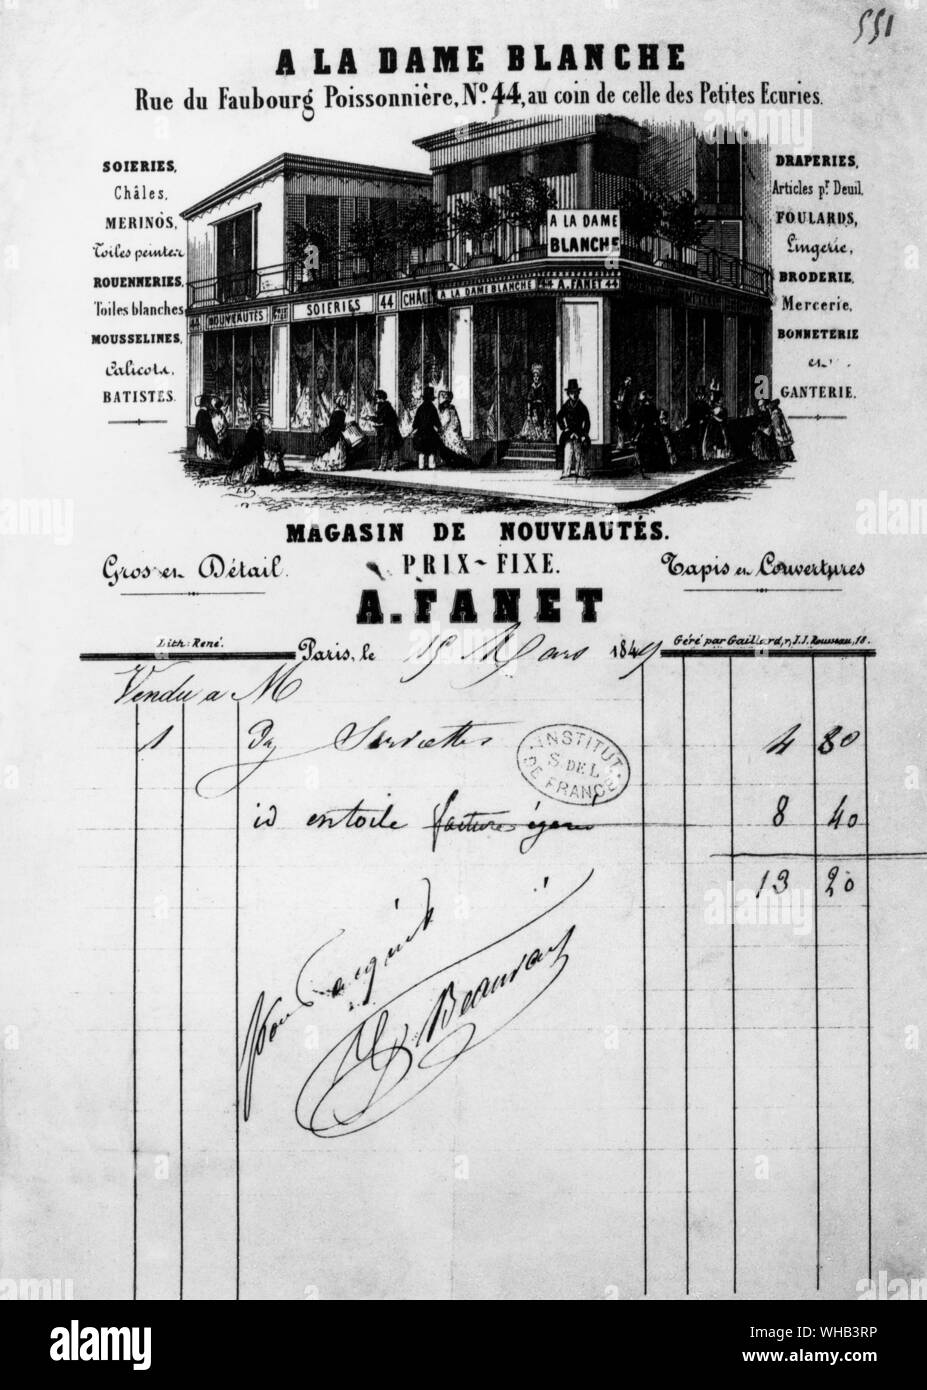 551
A LA DAME BLANCHE
Rue du Faubourg Poissonnière, Nº 44, au coin de celle des Petites Ecuries.
SOIERIES,
Châles,
MERINOS,
Toiles peintes
ROUENNERIES,
Toiles blanches
MOUSSELINES,
Calicots,
BATISTES.
DRAPERIES,
Articles pr. Deuil,
FOULARDS,
Lingerie,
BRODERIE,
Mercerie,
BONNETERIE
et
GANTERIE.
A LA DAME
BLANCHE
NOUVEAUTÉS
SOIERIES
44
CHÂL
A LA DAME BLANCHE
44 A. FANET 44
MAGASIN DE NOUVEAUTÉS.
Gros et Détail.
PRIX-FIXE.
Tapis et Couvertures
A. FANET
Lith: René.
Paris, le 15 Mars 1849
Géré par Gaillard, r. J.J. Rousseau, 18.
Vendu a M
1 Dz Serviettes 4 80
INSTITUT
S. DE L.
DE FRANCE
id en toile 8 40
13 20
Pour acquit
Beauvais
alamy
Image ID: WHB3RP
www.alamy.com